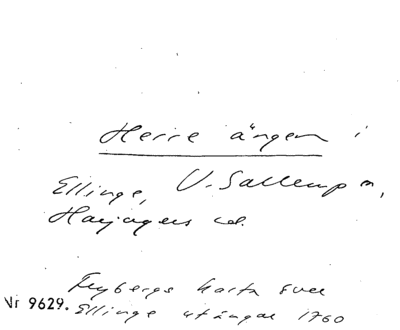 Herre ängen i
Ellinge, V. Sallerup sn,
Harjagers hd.
Frybergs karta över
Vr 9629. Ellinge utängar 1760